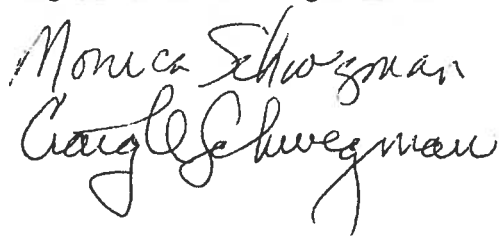 Monica Schwegman
Craig A Schwegman